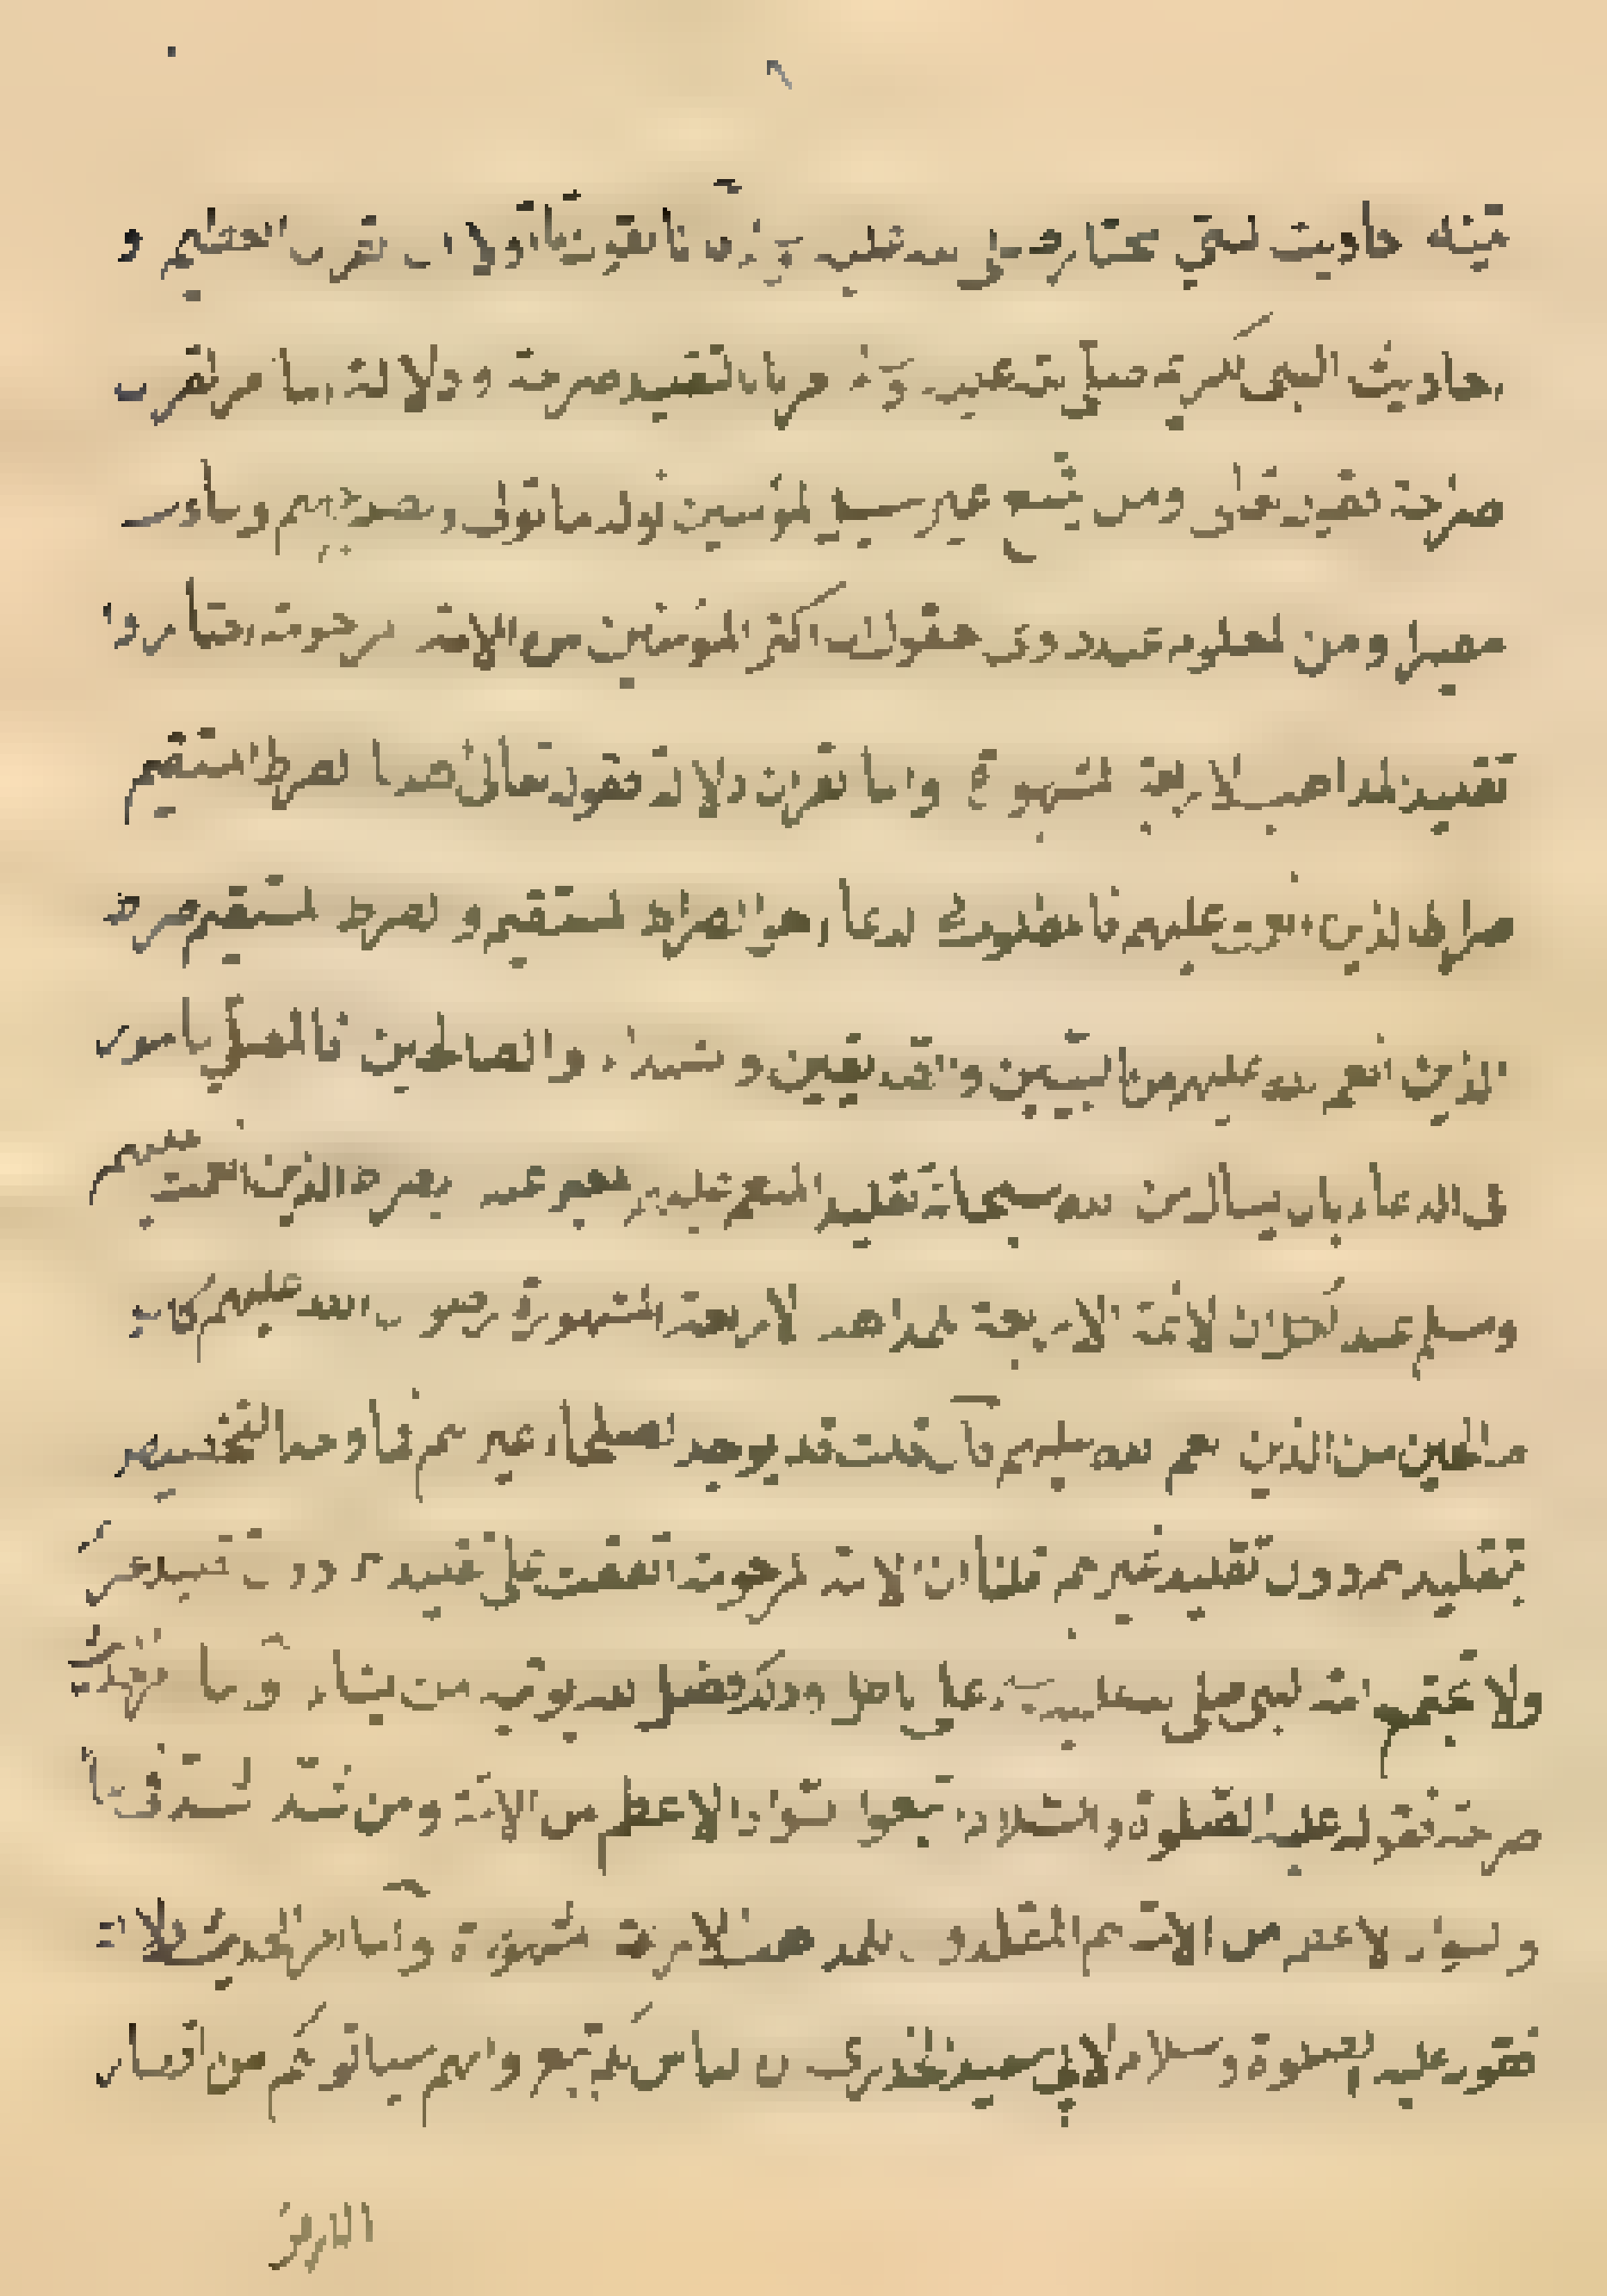 احاديث النبى المختار صلى الله عليه وآله فاقول ثانيا ولا ان القرآن العظيم و
احاديث النبى الكريم صلى الله عليه وآله امر بالتقليد صراحة ودلالة اما امر القرآن
صراحة فقوله تعالى ومن يتبع غير سبيل المؤمنين نوله ما تولى ونصله جهنم وساءت
مصيرا ومن المعلوم عند ذوى العقول ان اكثر المؤمنين من الامة المرحومة اختاروا
تقليد المذاهب الاربعة المشهورة واما القرآن دلالة فقوله تعالى اهدنا الصراط المستقيم
صراط الذين انعمت عليهم فالمطلوب فى الدعاء هو الصراط المستقيم والصراط المستقيم صراط
الذين انعم الله عليهم من النبيين والصديقين والشهداء والصالحين فالمصلى مامور
فى الدعاء بان يسال من الله سبحانه تقليد المنعم عليهم المعبر عنه بصراط الذين انعمت عليهم
وسلم عند الكل ان الائمة الاربعة للمذاهب الاربعة المشهورة رضوان الله عليهم كانوا
صالحين من الذين انعم الله عليهم فان قلت قد يوجد الصلحاء غيرهم فما وجه التخصيص
بتقليدهم دون تقليد غيرهم قلنا ان الامة المرحومة اتفقت على تقليدهم دون تقليد غيرهم
ولا تجتمع امة النبى صلى الله عليه وآله على باطل وذلك فضل الله يوتيه من يشاء واما الحديث
صراحة فقوله عليه الصلوة والسلام اتبعوا السواد الاعظم من الامة ومن شذ شذ فى النار
والسواد الاعظم من الامة هم المقلدون للمذاهب الاربعة المشهورة واما امر الحديث دلالة
فقوله عليه الصلوة والسلام لابى سعيد الخدرى ان الناس لكم تبع وانهم سياتونكم من اقطار
الارض